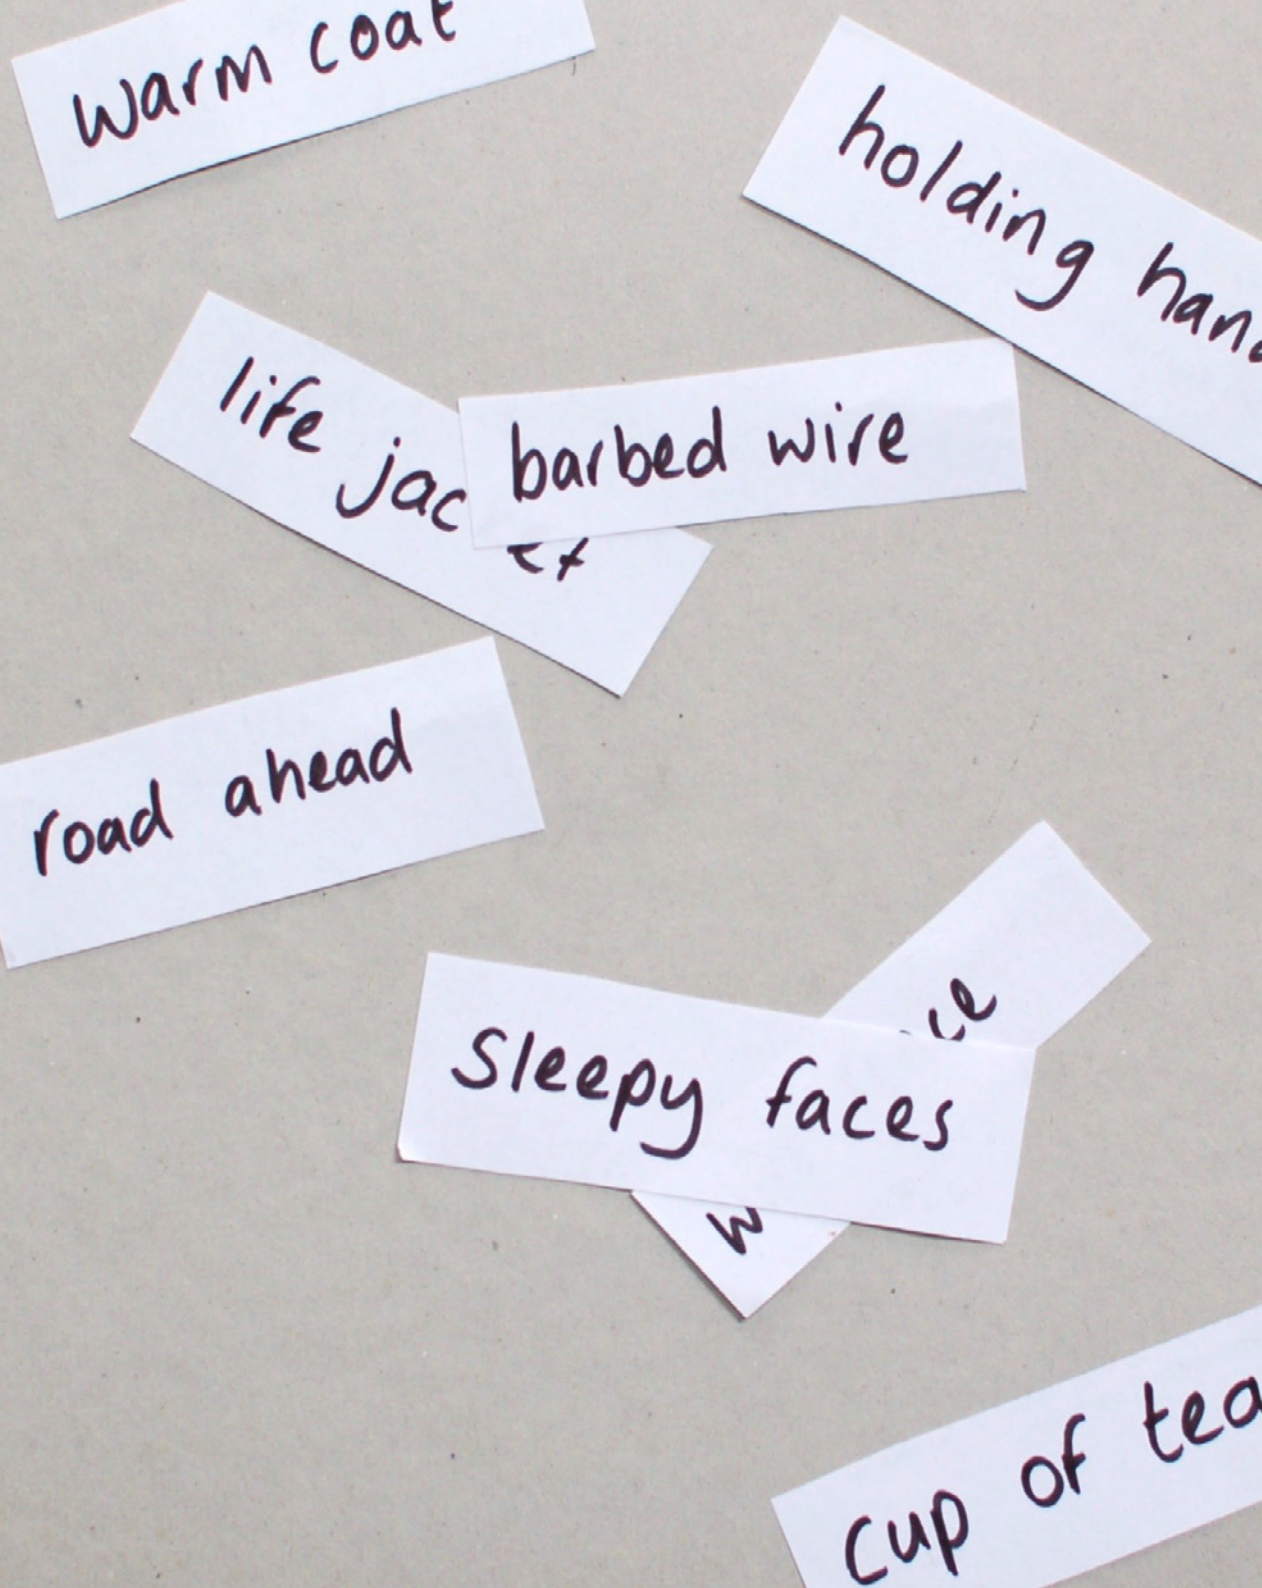 warm coat
holding han
life jac et
barbed wire
road ahead
Sleepy faces
cup of tea